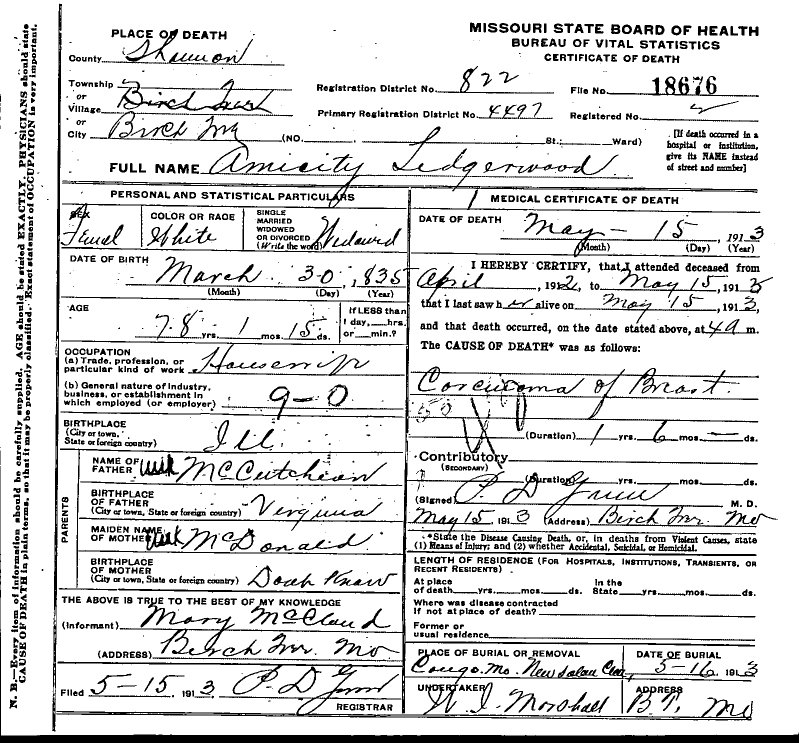 MISSOURI STATE BOARD OF HEALTH
BUREAU OF VITAL STATISTICS
CERTIFICATE OF DEATH
PLACE OF DEATH
County Shannon
Township
or
Village Birch Tree
or
City Birch Tree (NO. St.; Ward)
Registration District No. 822 File No. 18676
Primary Registration District No. 4497 Registered No. 2
[If death occurred in a
hospital or institution,
give its NAME instead
of street and number]
FULL NAME Amicity Ledgerwood
PERSONAL AND STATISTICAL PARTICULARS
SEX Femal
COLOR OR RACE White
SINGLE
MARRIED
WIDOWED
OR DIVORCED
(Write the word) Widowed
DATE OF BIRTH
March 30, 1835
(Month) (Day) (Year)
AGE
78 yrs. 1 mos. 15 ds.
If LESS than
1 day, hrs.
or min.?
OCCUPATION
(a) Trade, profession, or
particular kind of work Housewife
(b) General nature of industry,
business, or establishment in
which employed (or employer) 9-0
BIRTHPLACE
(City or town,
State or foreign country) Ill.
PARENTS
NAME OF
FATHER McCutchean
BIRTHPLACE
OF FATHER
(City or town, State or foreign country) Virginia
MAIDEN NAME
OF MOTHER McDonald
BIRTHPLACE
OF MOTHER
(City or town, State or foreign country) Dont Know
THE ABOVE IS TRUE TO THE BEST OF MY KNOWLEDGE
(Informant) Mary McCloud
(ADDRESS) Birch Tree. Mo
Filed 5-15 1913 P. D. Gum
REGISTRAR
MEDICAL CERTIFICATE OF DEATH
DATE OF DEATH May 15, 1913
(Month) (Day) (Year)
I HEREBY CERTIFY, that I attended deceased from
April, 1912, to May 15, 1913
that I last saw her alive on May 15, 1913,
and that death occurred, on the date stated above, at 4 a m.
The CAUSE OF DEATH* was as follows:
Carcinoma of Breast
50
(Duration) 1 yrs. 6 mos. — ds.
Contributory
(SECONDARY)
(Duration) yrs. mos. ds.
(Signed) P. D. Gum M. D.
May 15 1913 (Address) Birch Tree Mo
*State the Disease Causing Death, or, in deaths from Violent Causes, state
(1) Means of Injury; and (2) whether Accidental, Suicidal, or Homicidal.
LENGTH OF RESIDENCE (FOR HOSPITALS, INSTITUTIONS, TRANSIENTS, OR
RECENT RESIDENTS)
At place In the
of death yrs. mos. ds. State yrs. mos. ds.
Where was disease contracted
if not at place of death?
Former or
usual residence
PLACE OF BURIAL OR REMOVAL DATE OF BURIAL
Congo. Mo. New Salem 5-16 1913
UNDERTAKER ADDRESS
W. I. Morshall B.T. Mo
N. B.—Every item of information should be carefully supplied. AGE should be stated EXACTLY. PHYSICIANS should state
CAUSE OF DEATH in plain terms, so that it may be properly classified. Exact statement of OCCUPATION is very important.